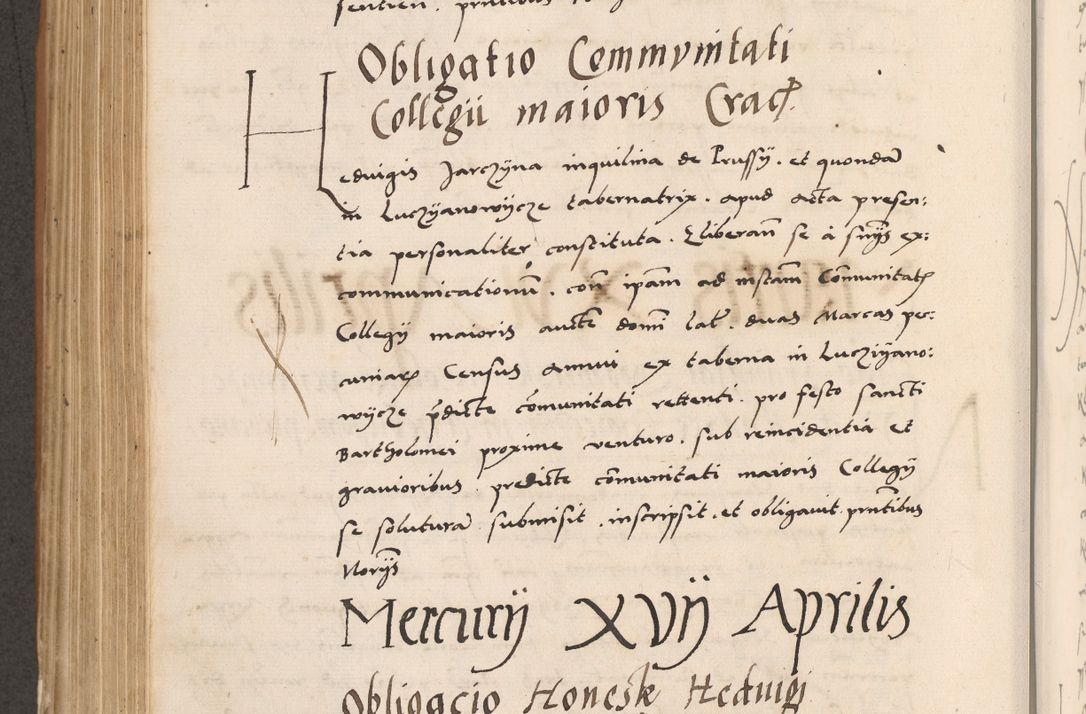 Obligatio Commvnitati
Collegii maioris Crac
Hedvigis Jarczyna inquilina de Prussy . et quondā
in Luczyanowycze tabernatrix . apud acta presen:
tia personaliter constituta . se a suis ex:
communicationū . ipam ad instam Cōmunitat
Collegy maioris aucte domī lat . duas Marcas pec:
cuniar Census annui ex taberna in Lucziyano:
wycze pdicte cōmunitati rettenti . pro festo sancti
Bartholomei proxime venturo . sub reincidentia et
gravioribus . predicte cōmunitati maioris Collegy
se soluturā submisit . inscripsit . et obligavit . pntibus
Norijs
Mercurij XVIJ Aprilis
Obligacio Honeste Hedvigi